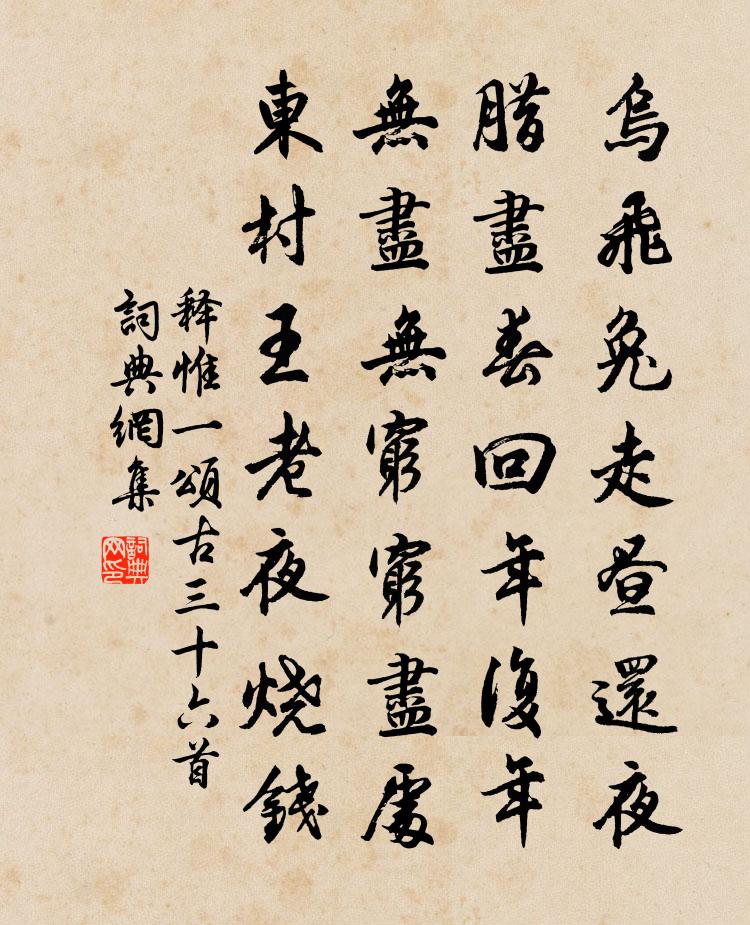 烏飛兔走晝還夜
腊盡春回年復年
無盡無窮窮盡處
東村王老夜燒錢
释惟一頌古三十六首
詞典網集
詞典网印